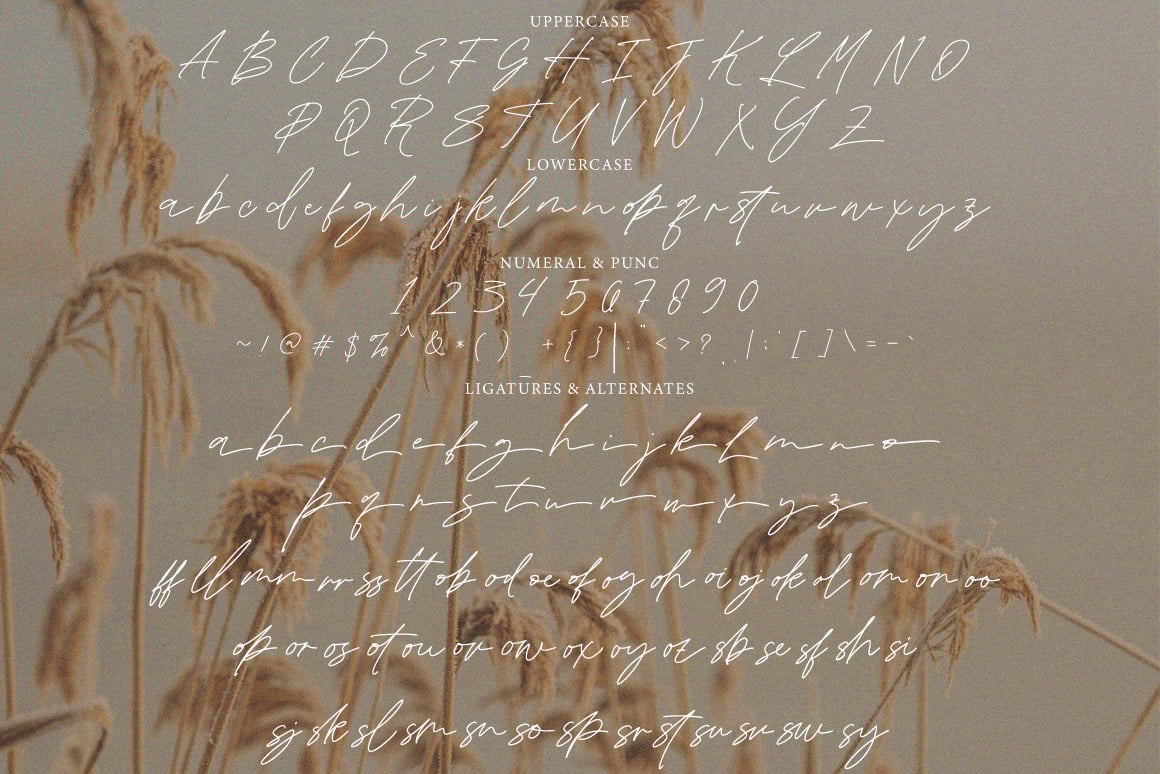 UPPERCASE
A B C D E F G H I J K L M N O
P Q R S T U V W X Y Z
LOWERCASE
a b c d e f g h i j k l m n o p q r s t u v w x y z
NUMERAL & PUNC
1 2 3 4 5 6 7 8 9 0
~ ! @ # $ % ^ & * ( ) _ + { } | : " < > ? , . / ; ' [ ] \ = - `
LIGATURES & ALTERNATES
a b c d e f g h i j k l m n o
p q r s t u v w x y z
ff ll mm rr ss tt ob od oe of og oh oi oj ok ol om on oo
op or os ot ou ov ow ox oy oz sb se sf sh si
sj sk sl sm sn so sp sr st su sv sw sy